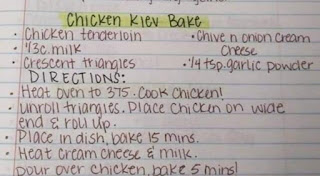 Chicken Kiev Bake
• Chicken tenderloin • Chive n onion Cream
• 1/3c. milk Cheese
• Crescent triangles • 1/4 tsp. garlic powder
DIRECTIONS:
• Heat oven to 375. Cook Chicken!
• Unroll triangles. Place Chicken on wide
end & roll up.
• Place in dish, bake 15 mins.
• Heat Cream cheese & milk.
pour over chicken, bake 5 mins!